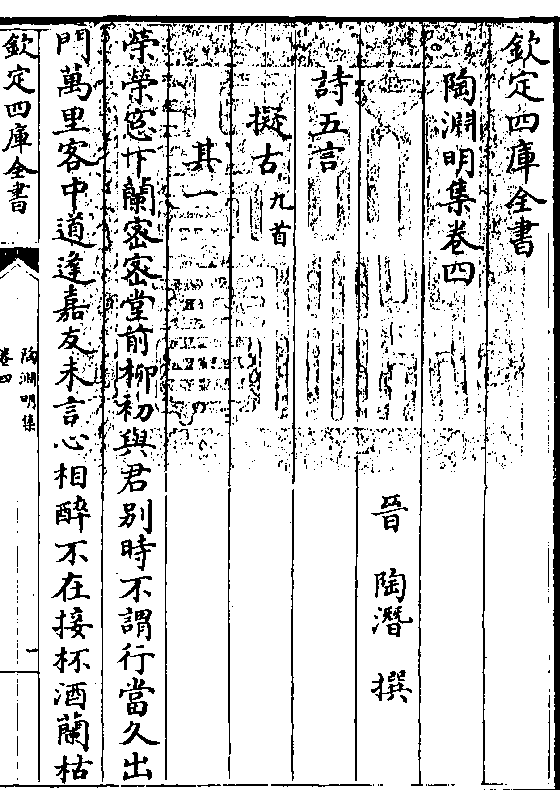 欽定四庫全書
陶淵明集卷四
晉 陶潛 撰
詩五言
擬古九首
其一
榮榮窓下蘭密密堂前栁初與君别時不謂行當久出
門萬里客中道逢嘉友未言心相醉不在接杯酒蘭枯
欽定四庫全書
陶淵明集
卷四
一